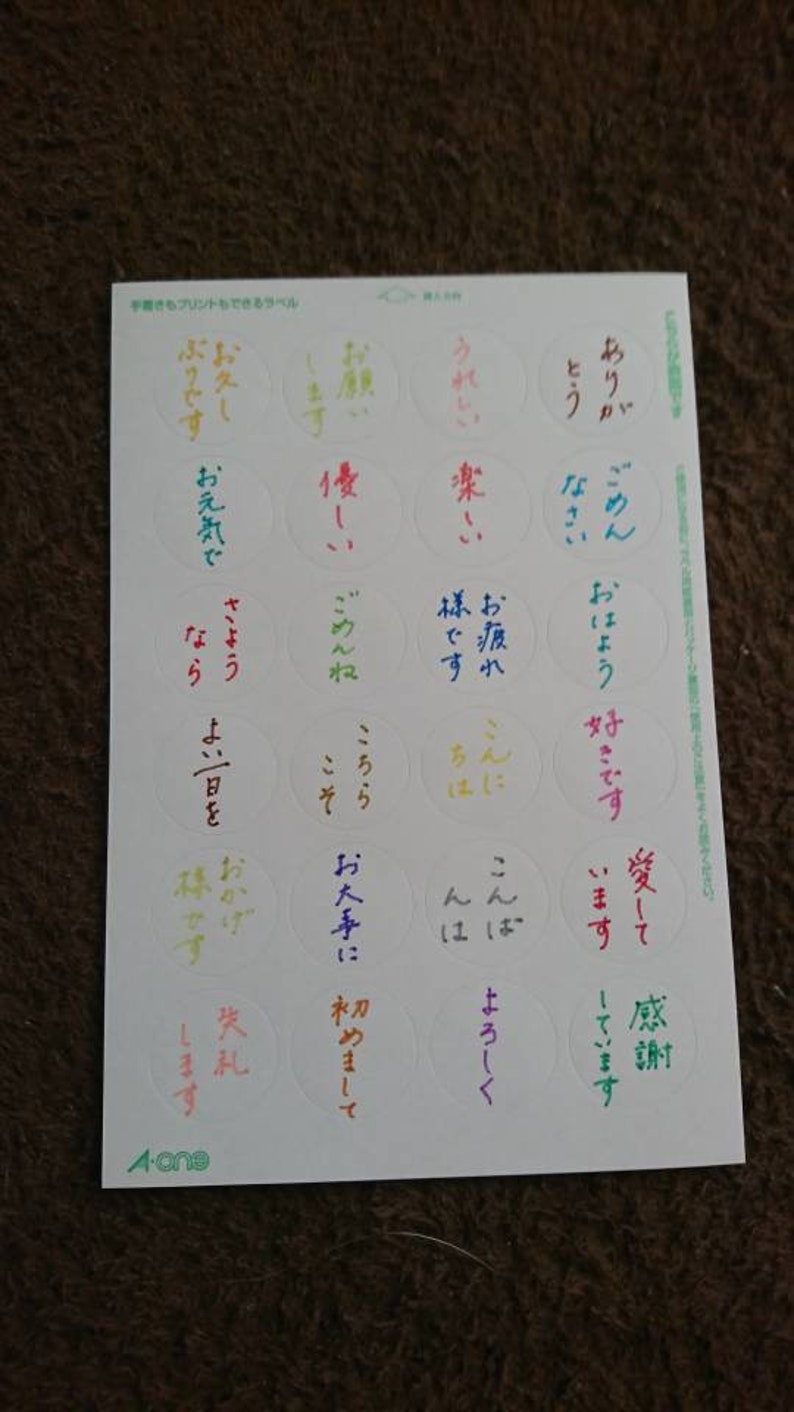 手書きもプリントもできるラベル
挿入方向
ありが
とう
うれしい
お願い
します
お久し
ぶりです
ごめん
なさい
楽しい
優しい
お元気で
おはよう
お疲れ
様です
ごめんね
さよう
なら
好きです
こんに
ちは
こちら
こそ
よい一日を
愛して
います
こんば
んは
お大事に
おかげ
様です
感謝
しています
よろしく
初めまして
失礼
します
A-one